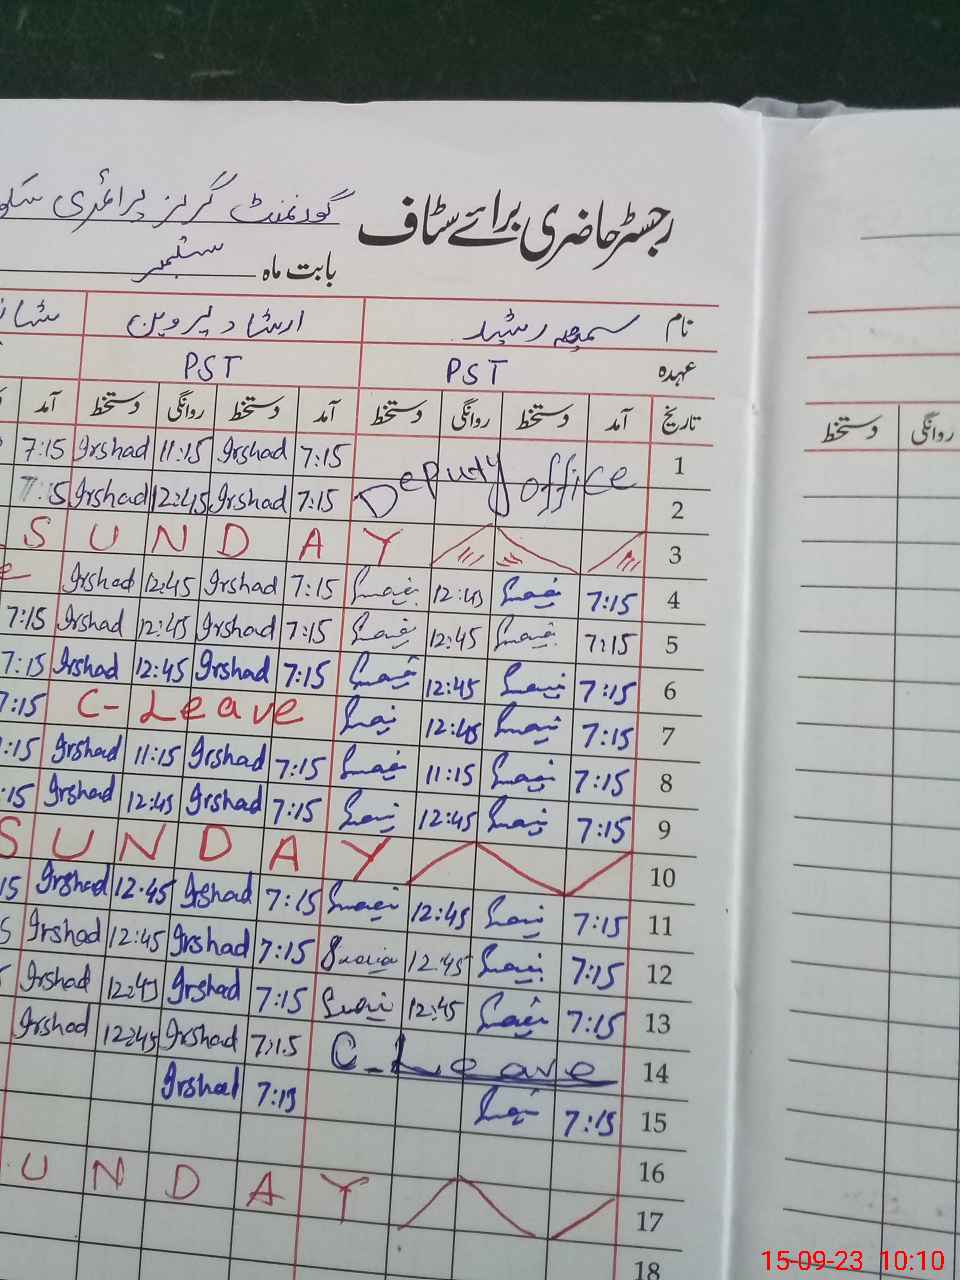 رجسٹر حاضری برائے سٹاف گورنمنٹ گرلز پرائمری
بابت ماہ ستمبر
نام سمیعہ رشید ارشاد پروین
عہدہ PST PST
تاریخ آمد دستخط روانگی دستخط آمد دستخط روانگی دستخط آمد
روانگی دستخط
1 7:15 Irshad 11:15 Irshad 7:15
Deputy office
2 7:15 Irshad 12:45 Irshad 7:15
3 SUNDAY
4 7:15 12:45 7:15 Irshad 12:45 Irshad
5 7:15 12:45 7:15 Irshad 12:45 Irshad 7:15
6 7:15 12:45 7:15 Irshad 12:45 Irshad 7:15
7 7:15 12:45 C-Leave 7:15
8 7:15 11:15 7:15 Irshad 11:15 Irshad :15
9 7:15 12:45 7:15 Irshad 12:45 Irshad :15
10 SUNDAY
11 7:15 12:45 7:15 Irshad 12:45 Irshad 15
12 7:15 12:45 7:15 Irshad 12:45 Irshad 5
13 7:15 12:45 7:15 Irshad 12:45 Irshad
14 C-Leave 7:15 Irshad 12:45 Irshad
15 7:15 7:15 Irshad
16
17 UNDAY
18
15-09-23 10:10